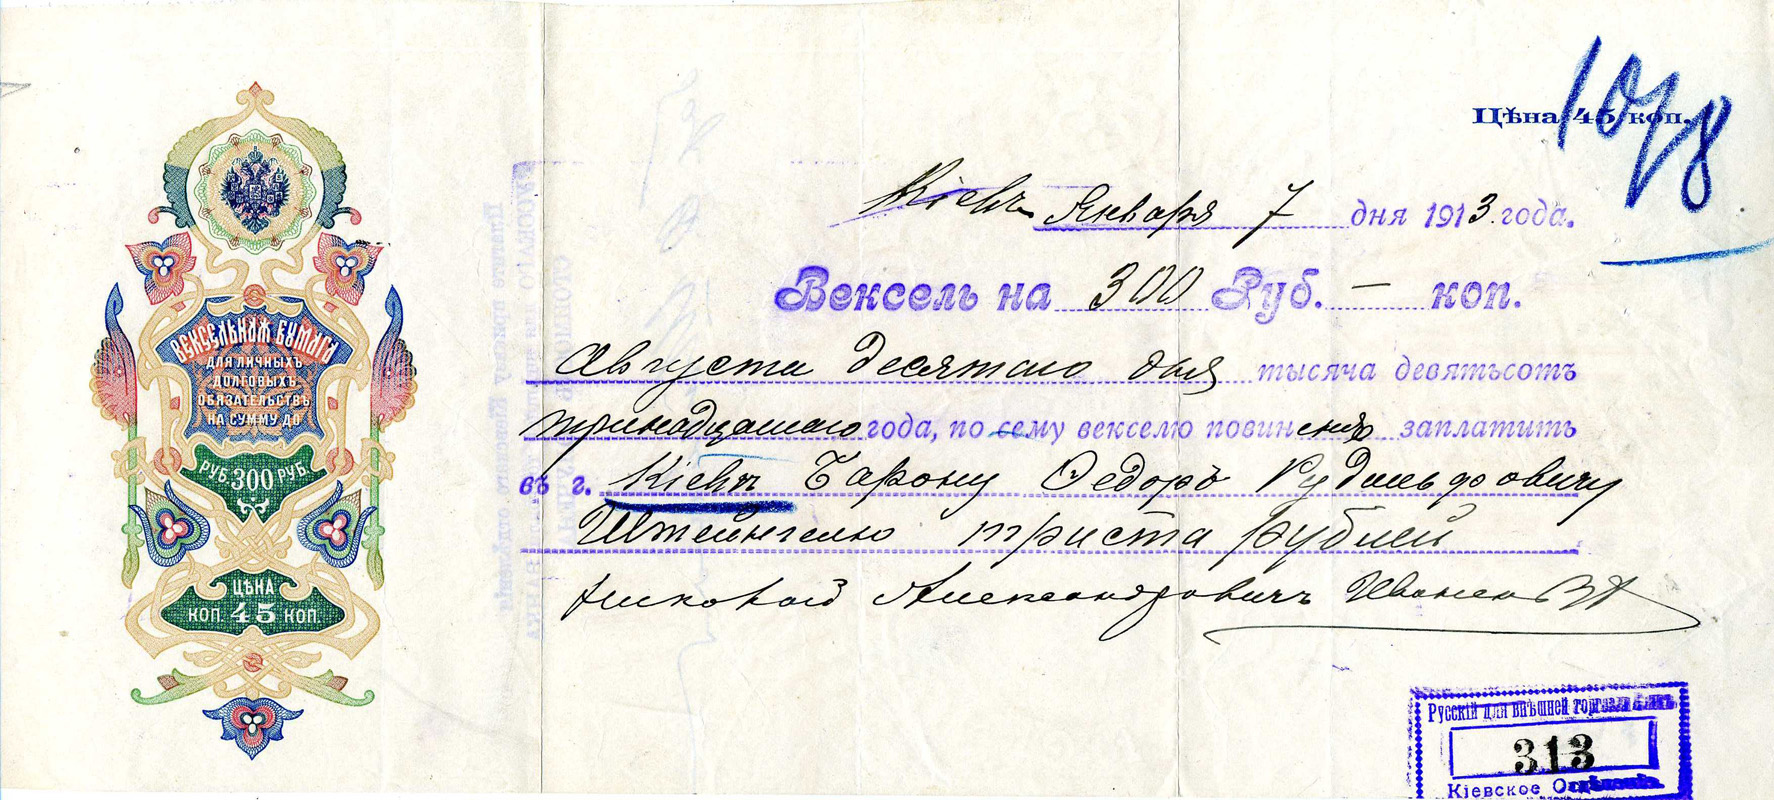 ВЕКСЕЛЬНАЯ БУМАГА
ДЛЯ ЛИЧНЫХЪ
ДОЛГОВЫХЪ
ОБЯЗАТЕЛЬСТВЪ
НА СУММУ ДО
РУБ. 300 РУБ.
ЦѢНА
КОП. 45 КОП.
Цѣна 45 коп.
1078
Кіевъ Января 7 дня 1913 года.
Вексель на 300 Руб. — коп.
Августа десятаго дня тысяча девятьсотъ
тринадцатаго года, по сему векселю повиненъ заплатить
въ г. Кіевѣ Барону Федору Рудольфовичу
Штейнгелю триста рублей
Александровичъ
Русскій для внѣшней торговли банкъ
313
Кіевское Отдѣленіе